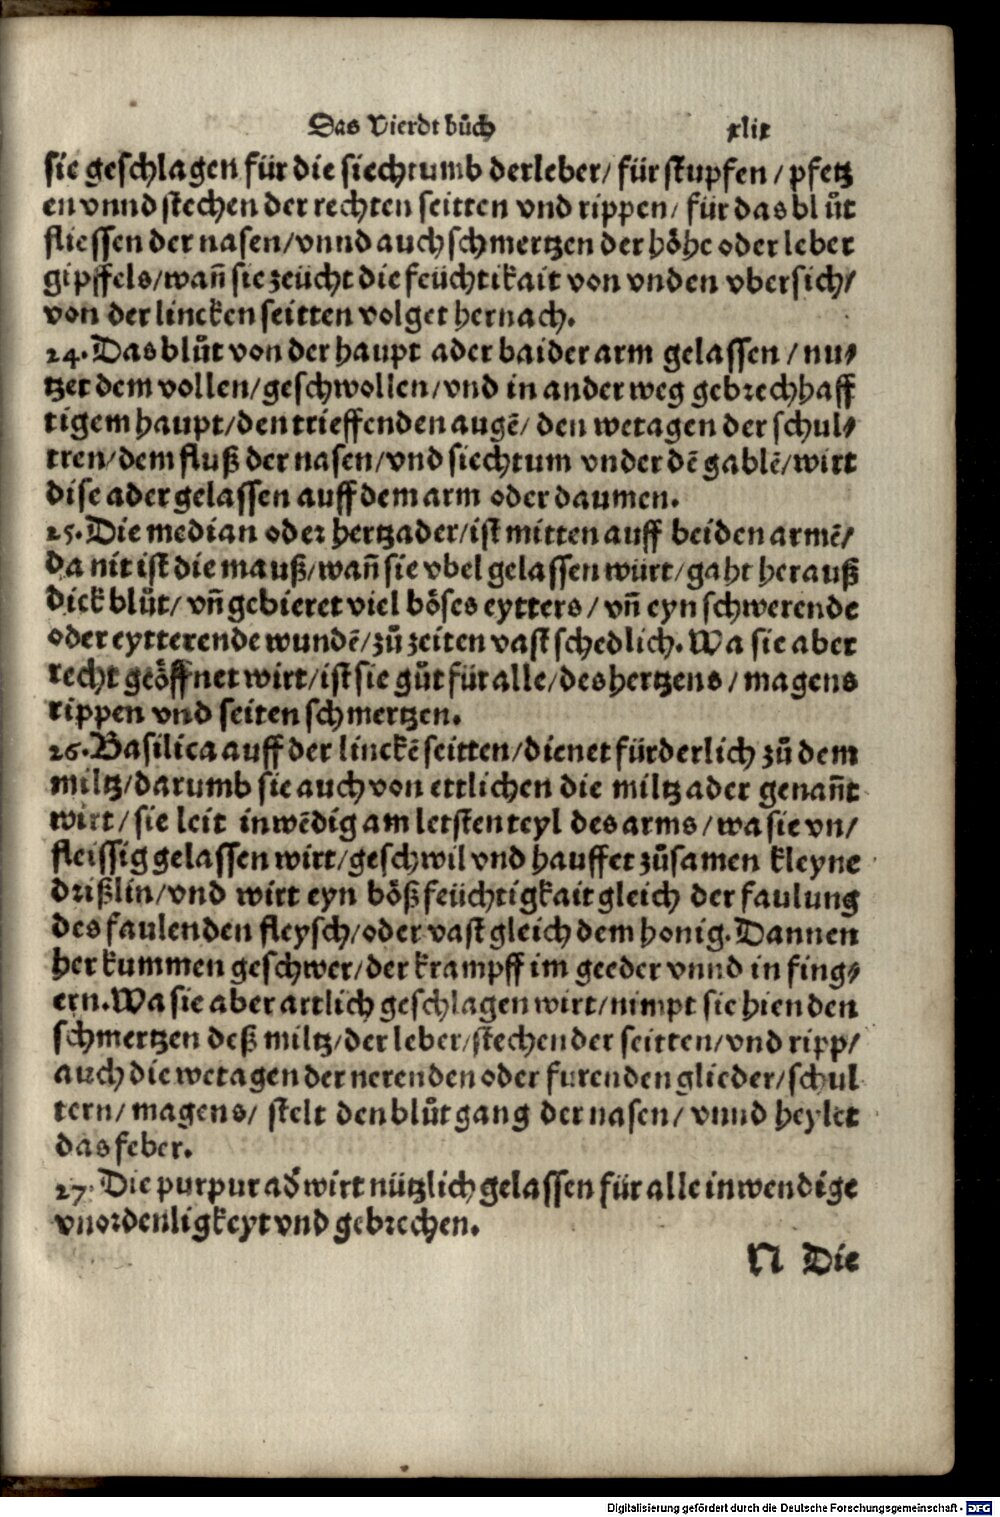 Das Vierdt bůch xlix
sie geschlagen für die siechtumb der leber/ für stupfen / pfetz
en vnnd stechen der rechten seitten vnd rippen/ für das blůt
fliessen der nasen/vnnd auch schmertzen der höhe oder leber
gipffels/wañ sie zeücht die feüchtikait von vnden vbersich/
von der lincken seitten volget hernach.
24. Das blůt von der haupt ader baider arm gelassen / nu⸗
tzet dem vollen/geschwollen/vnd in ander weg gebrechhaff
tigem haupt/den trieffenden augē/ den wetagen der schul⸗
tren/dem fluß der nasen/vnd siechtum vnder dē gablē/wirt
dise ader gelassen auff dem arm oder daumen.
25. Die median oder hertzader/ist mitten auff beiden armē/
da nit ist die mauß/wañ sie vbel gelassen würt/gaht herauß
dick blůt/ vñ gebieret viel böses eytters / vñ eyn schwerende
oder eytterende wundē/zů zeiten vast schedlich. Wa sie aber
recht geöffnet wirt/ist sie gůt für alle/des hertzens / magens
rippen vnd seiten schmertzen.
26. Basilica auff der linckē seitten/dienet fürderlich zů dem
miltz/darumb sie auch von ettlichen die miltz ader genañt
wirt/ sie leit inwēdig am letsten teyl des arms / wa sie vn/
fleissig gelassen wirt/geschwil vnd hauffet zůsamen kleyne
drißlin/vnd wirt eyn böß feüchtigkait gleich der faulung
des faulenden fleysch/oder vast gleich dem honig. Dannen
her kummen geschwer/der krampff im geeder vnnd in fing⸗
ern. Wa sie aber artlich geschlagen wirt/nimpt sie hien den
schmertzen deß miltz/der leber/stechen der seitten/vnd ripp/
auch die wetagen der nerenden oder furenden glieder/schul
tern/ magens/ stelt den blůtgang der nasen/ vnnd heylet
das feber.
27. Die purpur ad' wirt nützlich gelassen für alle inwendige
vnordenligkeyt vnd gebrechen.
N Die
Digitalisierung gefördert durch die Deutsche Forschungsgemeinschaft - DFG